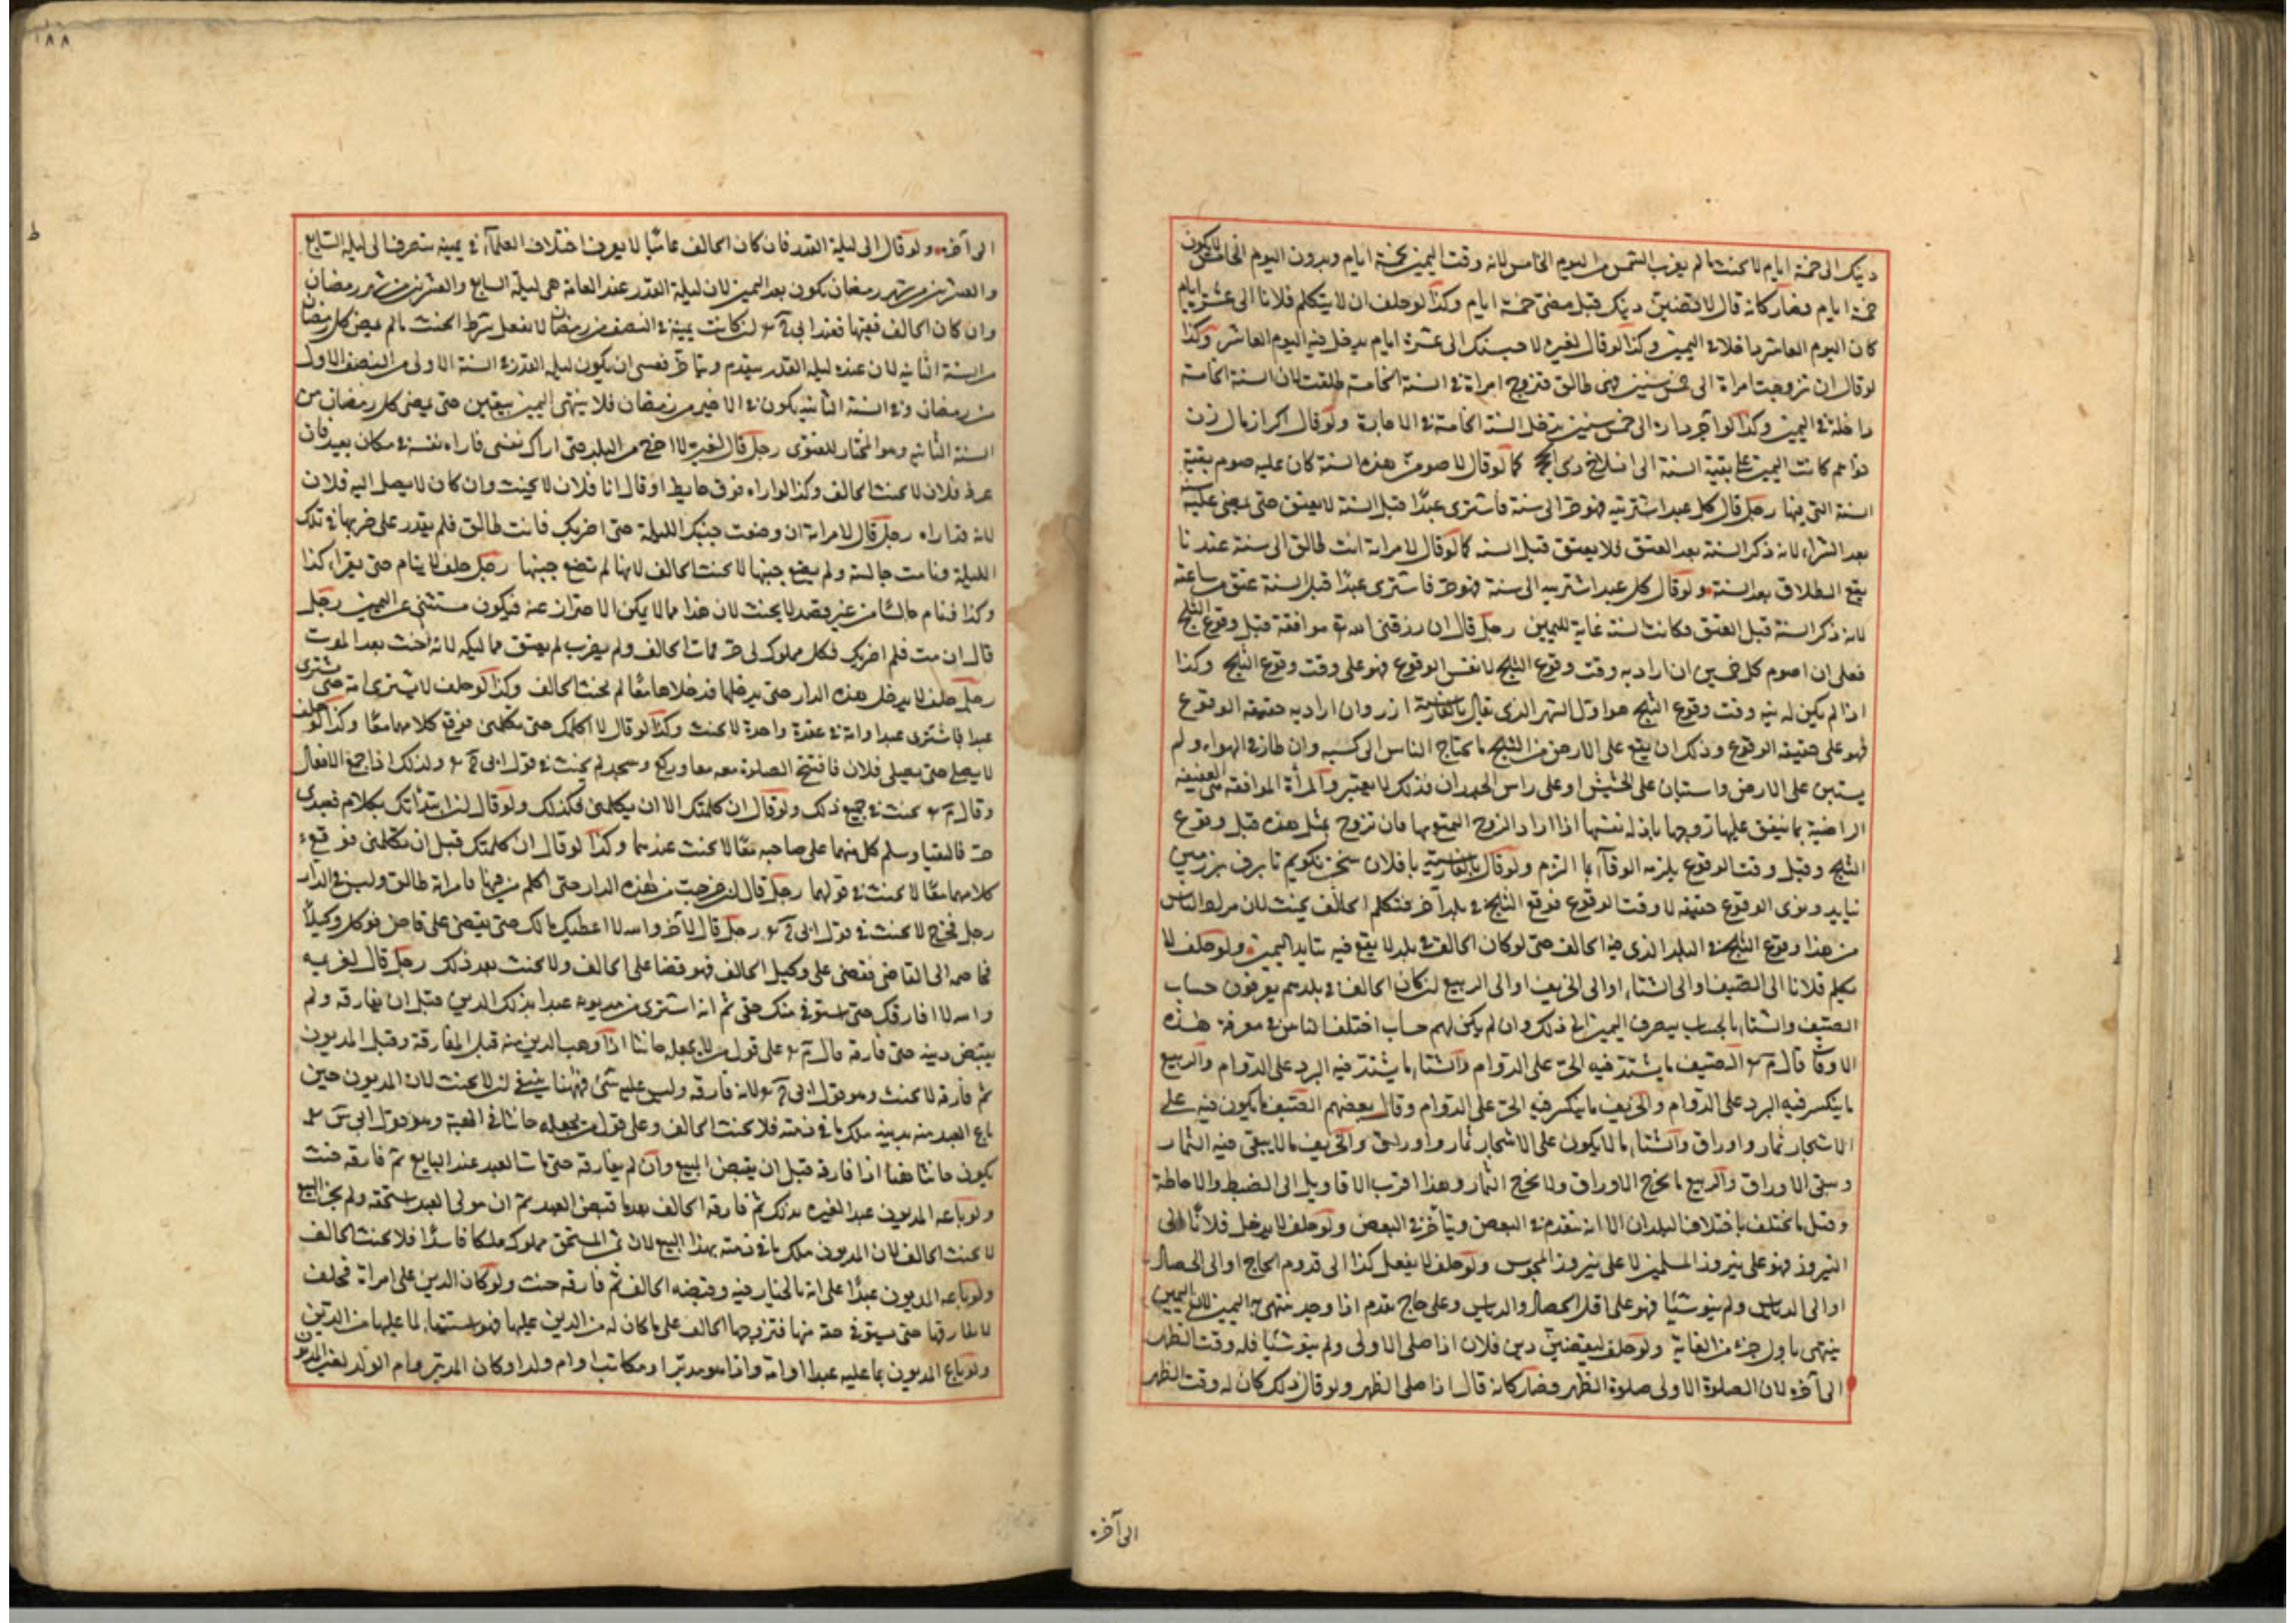 دينك الى خمسة ايام لا يحنث ما لم يغرب الشمس من اليوم الخامس لانه وقت اليمين بخمسة ايام وبدون اليوم الخامس لا يكون
خمسة ايام وصار كانه قال لاقضين دينك قبل مضي خمسة ايام وكذا لو حلف ان لا يتكلم فلانا الى عشرة ايام
كان اليوم العاشر داخلا في اليمين وكذا لو قال لغيره لاحبسنك الى عشرة ايام يدخل فيه اليوم العاشر وكذا
لو قال ان تزوجت امراة الى خمس سنين فهي طالق فتزوج امراة في السنة الخامسة طلقت لان السنة الخامسة
داخلة في اليمين وكذا لو آجر داره الى خمس سنين يدخل السنة الخامسة في الاجارة ولو قال اكر ازمال زن
كانت اليمين على بقية السنة الى انسلاخ ذي الحجة كما لو قال لاصومن هذه السنة كان عليه صوم بقية
السنة التي فيها رجل قال كل عبد اشتريته فهو حر الى سنة فاشترى عبدا قبل السنة لا يعتق حتى يمضي عليه
بعد الشراء لانه ذكر السنة بعد العتق فلا يعتق قبل السنة كما لو قال لامراته انت طالق الى سنة عندنا
يقع الطلاق بعد السنة ولو قال كل عبد اشتريه الى سنة فهو حر فاشترى عبدا قبل السنة عتق من ساعته
لانه ذكر السنة قبل العتق فكانت السنة غاية لليمين رجل قال ان رزقني الله تع موافقة قبل وقوع الثلج
فعلي ان اصوم كل خميس ان اراد به وقت وقوع الثلج لا نفس الوقوع فهو على وقت وقوع الثلج وكذا
اذا لم يكن له نية وقت وقوع الثلج هو اول الشهر الذي يقال بالفارسية ازر وان اراد به حقيقة الوقوع
فهو على حقيقة الوقوع وذلك ان يقع على الارض من الثلج ما يحتاج الناس الى كسبه وان طار في الهواء ولم
يستبن على الارض واستبان على الحشيش او على راس الجدران فذلك لا يعتبر والمرأة الموافقة هي العفيفة
الراضية بما ينفق عليها زوجها باذلة نفسها اذا اراد الزوج التمتع بها فان تزوج بمثل هذه قبل وقوع
الثلج وقبل وقت الوقوع يلزمه الوفاء بما التزم ولو قال بالفارسية با فلان سخن نكويم تا برف بر زمين
نيايد ونوى الوقوع حقيقة لا وقت الوقوع فوقع الثلج في بلد آخر فتكلم الحالف يحنث لان مراد الناس
من هذا وقوع الثلج في البلد الذي فيه الحالف حتى لو كان الحالف في بلد لا يقع فيه يتابد اليمين ولو حلف لا
يكلم فلانا الى الصيف او الى الشتاء او الى الخريف او الى الربيع ان كان الحالف في بلدهم يعرفون حساب
الصيف والشتاء بالحساب يصرف اليمين الى ذلك وان لم يكن لهم حساب اختلف الناس في معرفة هذه
الاوقات قال م رح الصيف ما يشتد فيه الحر على الدوام والشتاء ما يشتد فيه البرد على الدوام والربيع
ما ينكسر فيه البرد على الدوام والخريف ما ينكسر فيه الحر على الدوام وقال بعضهم الصيف ما يكون فيه على
الاشجار ثمار واوراق والشتاء ما لا يكون على الاشجار ثمار واوراق والخريف ما لا يبقى فيه الثمار
وتبقى الاوراق والربيع ما يخرج الاوراق ولا يخرج الثمار وهذا اقرب الاقاويل الى الضبط والاحاطة
وقيل ما يختلف باختلاف البلدان الا انه يتقدم في البعض ويتأخر في البعض ولو حلف لا يدخل فلانا الى
النيروز فهو على نيروز المسلمين لا على نيروز المجوس ولو حلف لا يفعل كذا الى قدوم الحاج او الى الحصاد
او الى الدياس ولم ينو شيئا فهو على اقل الحصاد والدياس وعلى حاج يقدم اذا وجد ينتهي به اليمين لان اليمين
ينتهي باول جزء من الغاية ولو حلف ليقضين دين فلان اذا صلى الاولى ولم ينو شيئا فله وقت الظهر
الى آخره لان الصلوة الاولى صلوة الظهر وصار كانه قال اذا صلى الظهر ولو قال ذلك كان له وقت الظهر
الى آخره
١٨٨
الى آخره ولو قال الى ليلة القدر فان كان الحالف عاميا لا يعرف اختلاف العلماء في يمينه ينصرف الى ليلة السابع
والعشرين من شهر رمضان يكون بعد اليمين لان ليلة القدر عند العامة هي ليلة السابع والعشرين من شهر رمضان
وان كان الحالف فقيها فعند ابي ح رح ان كانت يمينه في النصف من رمضان لا يفعل شرط الحنث ما لم يمض كل رمضان
من السنة الثانية لان عنده ليلة القدر يتقدم ويتاخر فعسى ان يكون ليلة القدر في السنة الاولى من النصف الاول
من رمضان وفي السنة الثانية يكون في الاخير من رمضان فلا ينتهي اليمين بيقين حتى يمضي كل رمضان من
السنة الثانية وهو المختار للفتوى رجل قال لغيره لا اخرج من البلد حتى اراك نفسي فاراه نفسه في مكان بعيد فان
عرفه فلان لا يحنث الحالف وكذا لو اراه فوق حايط او قال انا فلان لا يحنث وان كان لا يصل اليه فلان
لانه قد اراه رجل قال لامراته ان وضعت جنبك الليلة حتى اضربك فانت طالق فلم يقدر على ضربها في تلك
الليلة ونامت جالسة ولم يضع جنبها لا يحنث الحالف لانها لم تضع جنبها رجل حلف لا ينام حتى يقرأ كذا
وكذا فنام جالسا من غير قصد لا يحنث لان هذا مما لا يمكن الاحتراز عنه فيكون مستثنى عن اليمين رجل
قال ان مت فلم اضربك فكل مملوك لي حر فمات الحالف ولم يضرب لم يعتق مماليكه لانه حنث بعد الموت
رجل حلف لا يدخل هذه الدار حتى يدخلها فدخلاها معا لم يحنث الحالف وكذا لو حلف لا يشترى امة حتى يشترى
عبدا فاشترى عبدا وامة في عقدة واحدة لا يحنث وكذا لو قال لا اكلمك حتى تكلمني فوقع كلامهما معا وكذا لو حلف
لا يصلي حتى يصلي فلان فافتتح الصلوة معه معا وركع وسجد لم يحنث في قول ابي ح رح وكذلك اذا جمع الافعال
وقال م رح يحنث في جميع ذلك ولو قال ان كلمتك الا ان يكلمني فكذلك ولو قال ان ابتدأتك بكلام فعبدي
حر فالتقيا وسلم كل منهما على صاحبه معا لا يحنث عندهما وكذا لو قال ان كلمتك قبل ان تكلمني فوقع
كلامهما معا لا يحنث في قولهما رجل قال ان خرجت من هذه الدار حتى اكلم من فيها فامراته طالق وليس في الدار
رجل فخرج لا يحنث في قول ابي ح رح رجل قال لآخر والله لا اعطيك مالك حتى يقضي علي قاض فوكل وكيلا
فخاصمه الى القاضي فقضى على وكيل الحالف فهو قضاء على الحالف ولا يحنث بعد ذلك رجل قال لغريمه
والله لا افارقك حتى استوفي منك حقي ثم انه اشترى من مديونه عبدا بذلك الدين قبل ان يفارقه ولم
يقبض دينه حتى فارقه قال م رح على قول من لا يجعله حانثا اذا وهب الدين منه قبل المفارقة وقبل المديون
ثم فارقه لا يحنث وهو قول ابي ح رح لانه فارقه وليس عليه شئ فههنا ينبغي ان لا يحنث لان المديون حين
باع العبد منه بدينه ملك ما في ذمته فلا يحنث الحالف وعلى قول من يجعله حانثا في الهبة وهو قول ابي س رح
يكون حانثا هنا اذا فارقه قبل ان يقبض المبيع وان لم يفارقه حتى مات العبد عند البايع ثم فارقه حنث
ولو باعه المديون عبدا لغيره بذلك ثم فارقه الحالف بعد ما قبض العبد ثم ان مولى العبد استحقه ولم يجز البيع
لا يحنث الحالف لان المديون ملك ما في ذمته بهذا البيع لان ثمن المستحق مملوك ملكا فاسدا فلا يحنث الحالف
ولو باعه المديون عبدا على انه بالخيار فيه وقبضه الحالف ثم فارقه حنث ولو كان الدين على امراة فحلف
لا يفارقها حتى يستوفي حقه منها فتزوجها الحالف على ما كان له من الدين عليها فهو استيفاء لما عليها من الدين
ولو باع المديون بما عليه عبدا او امة واذا هو مدبر او مكاتب او ام ولد او كان المدبر وام الولد لغير المديون
ط